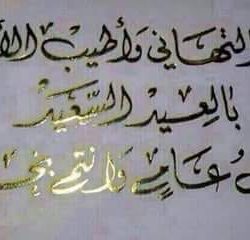 التهاني وأطيب
بالعيد السعيد
عام وانتم